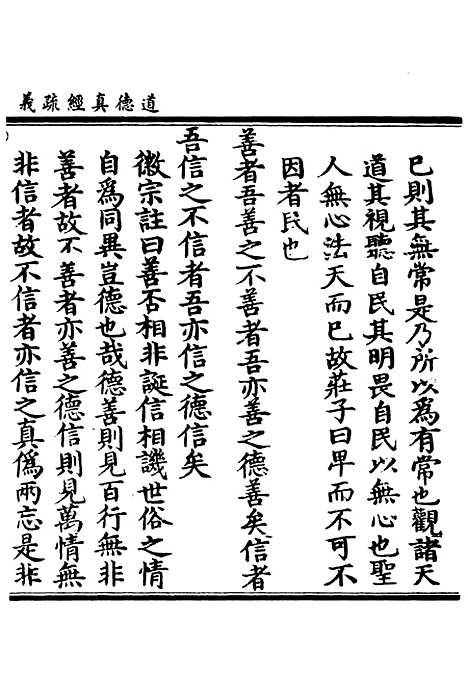 道德真經疏義
已則其無常是乃所以為有常也觀諸天
道其視聽自民其明畏自民以無心也聖
人無心法天而已故莊子曰卑而不可不
因者民也
善者吾善之不善者吾亦善之德善矣信者
吾信之不信者吾亦信之德信矣
徽宗註曰善否相非誕信相譏世俗之情
自為同異豈德也哉德善則見百行無非
善者故不善者亦善之德信則見萬情無
非信者故不信者亦信之真偽兩忘是非